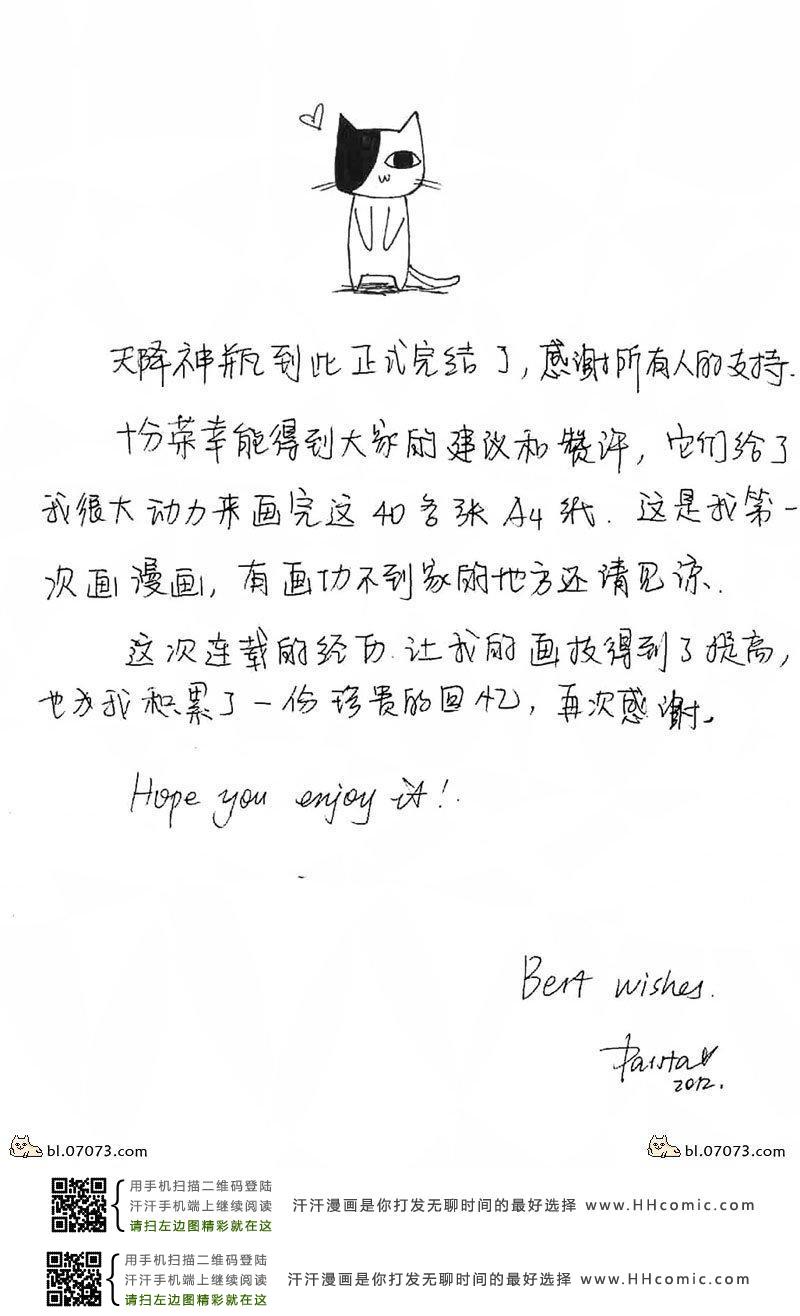 天降神瓶到此正式完结了,感谢所有人的支持.
十分荣幸能得到大家的建议和赞许,它们给了
我很大动力来画完这40多张A4纸.这是我第一
次画漫画,有画功不到家的地方还请见谅.
这次连载的经历.让我的画技得到了提高,
也为我积累了一份珍贵的回忆,再次感谢。
Hope you enjoy it!
Best wishes.
2012.
bl.07073.com
bl.07073.com
用手机扫描二维码登陆
汗汗手机端上继续阅读
请扫左边图精彩就在这
汗汗漫画是你打发无聊时间的最好选择 www.HHcomic.com
用手机扫描二维码登陆
汗汗手机端上继续阅读
请扫左边图精彩就在这
汗汗漫画是你打发无聊时间的最好选择 www.HHcomic.com